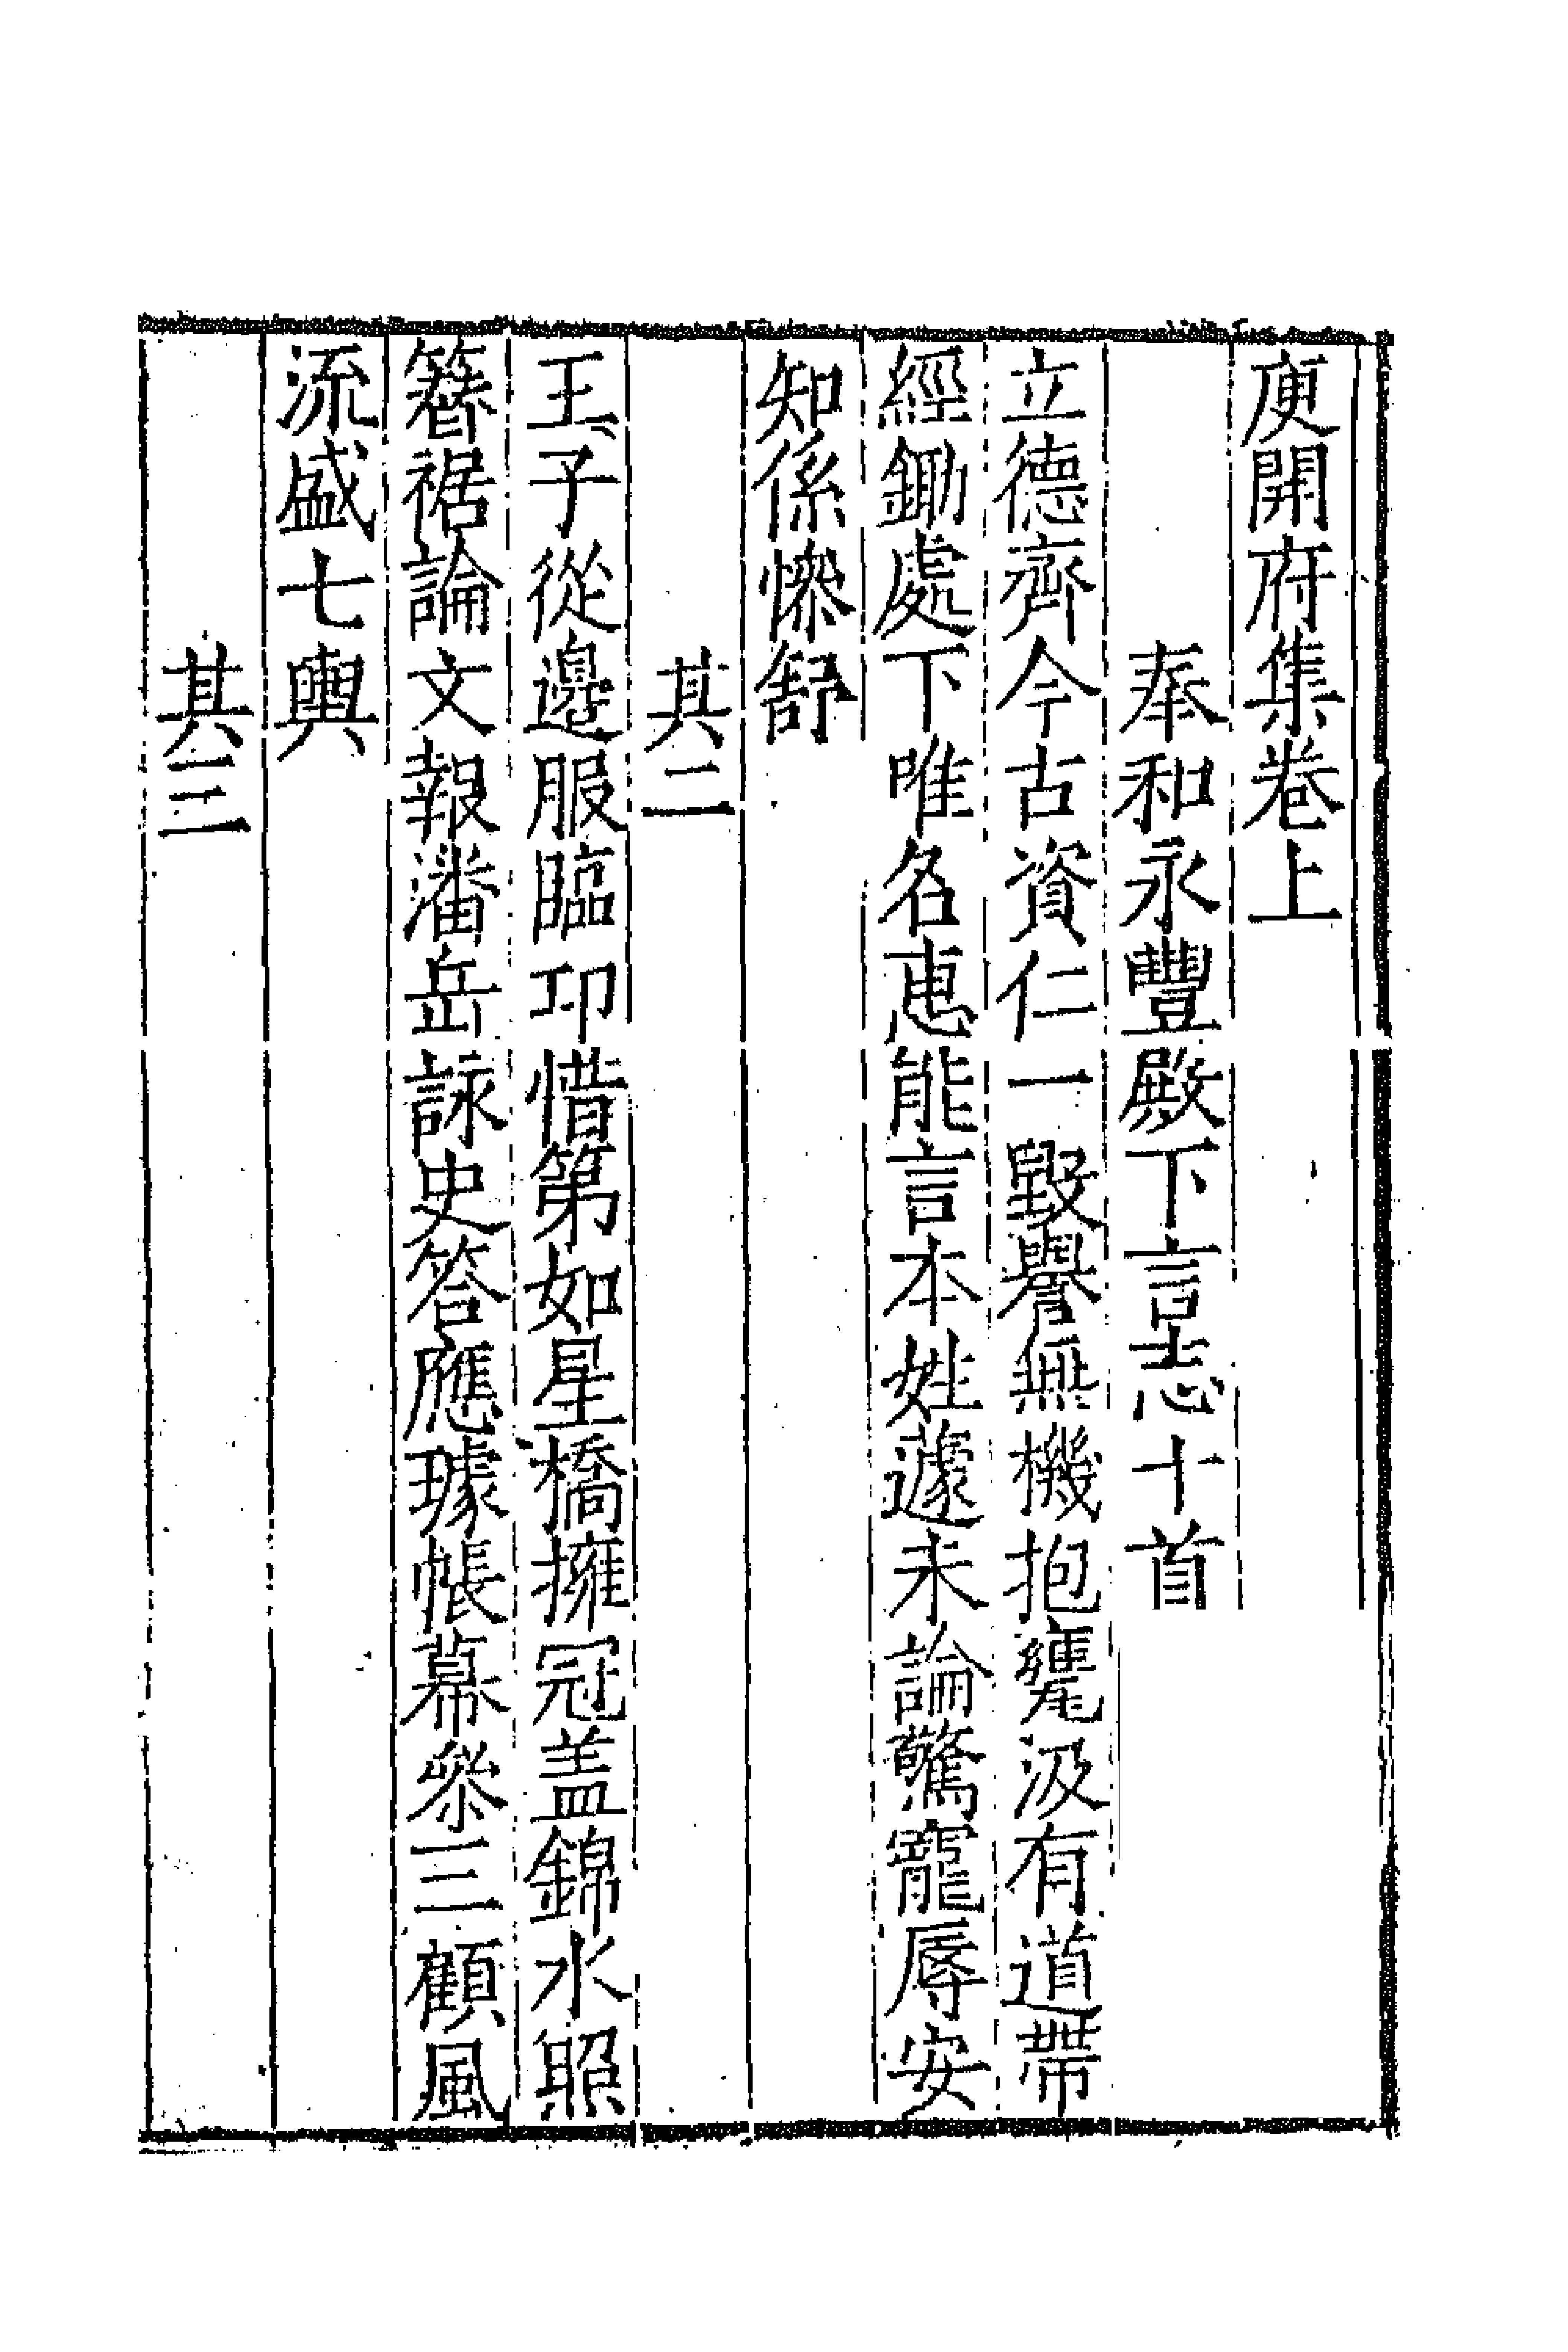 庾開府集卷上
奉和永豐殿下言志十首
立德齊今古資仁一毀譽無機抱甕汲有道帶
經鋤處下唯名惠能言本姓蘧未論驚寵辱安
知係慘舒
其二
王子從邊服臨卭惜第如星橋擁冠盖錦水照
簪裾論文報潘岳詠史答應璩帳幕參三顧風
流盛七輿
其三